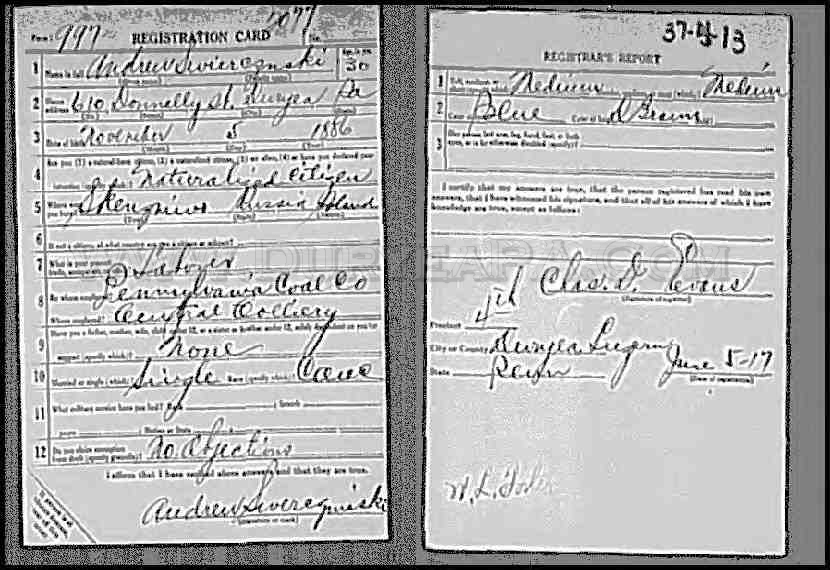 Form 1 997 REGISTRATION CARD No.
1 Name in full Andrew Swierczynski Age, in yrs. 30
2 Home address 610 Donnelly St. Duryea Pa
3 Date of birth November 5 1886
4 Are you (1) a natural-born citizen, (2) a naturalized citizen, (3) an alien, (4) or have you declared your
intention Naturalized Citizen
5 Where were you born? Russia Poland
6 If not a citizen, of what country are you a citizen or subject?
7 What is your present trade, occupation Laborer
8 By whom employed? Pennsylvania Coal Co
Where employed? Central Colliery
9 Have you a father, mother, wife, child under 12, or a sister or brother under 12, solely dependent on you for
support (specify which)? None
10 Married or single (which)? Single Race (specify which)? Cauc
11 What military service have you had? Rank Branch
years Nation or State
12 Do you claim exemption from draft (specify grounds)? No Objections
I affirm that I have verified above answers and that they are true.
Andrew Swierczynski
(Signature or mark)
37-4-13
REGISTRAR'S REPORT
1 Tall, medium, or short (specify which)? Medium Slender, medium, or stout (which)? Medium
2 Color of eyes? Blue Color of hair? D Brown Bald?
3 Has person lost arm, leg, hand, foot, or both eyes, or is he otherwise disabled (specify)?
I certify that my answers are true, that the person registered has read his own
answers, that I have witnessed his signature, and that all of his answers of which I have
knowledge are true, except as follows:
Chas. D. Evans
(Signature of registrar)
Precinct 4th
City or County Duryea Luzerne
State Penn June 5-17
(Date of registration)
W. L.
WWW.DURYEAPA.COM